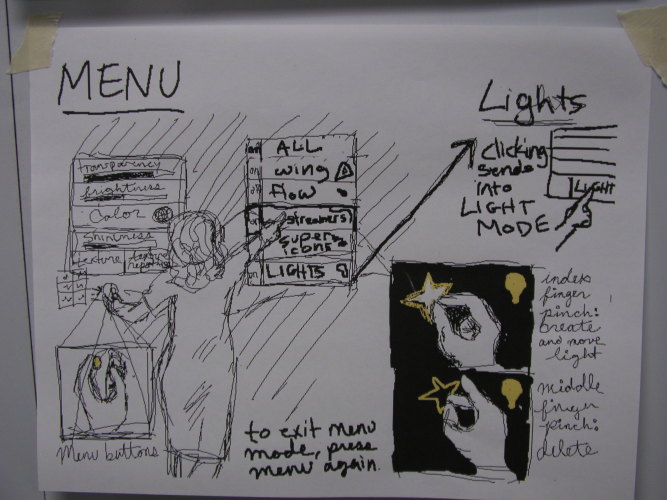 MENU
transparency
brightness
Color
shininess
texture
texture
on ALL
on wing
off flow
on streamers
super icons
on LIGHTS
Menu buttons
to exit menu
mode, press
menu again.
Lights
clicking
sends
into
LIGHT
MODE
LIGHT
index
finger
pinch:
create
and move
light
middle
finger
pinch:
delete